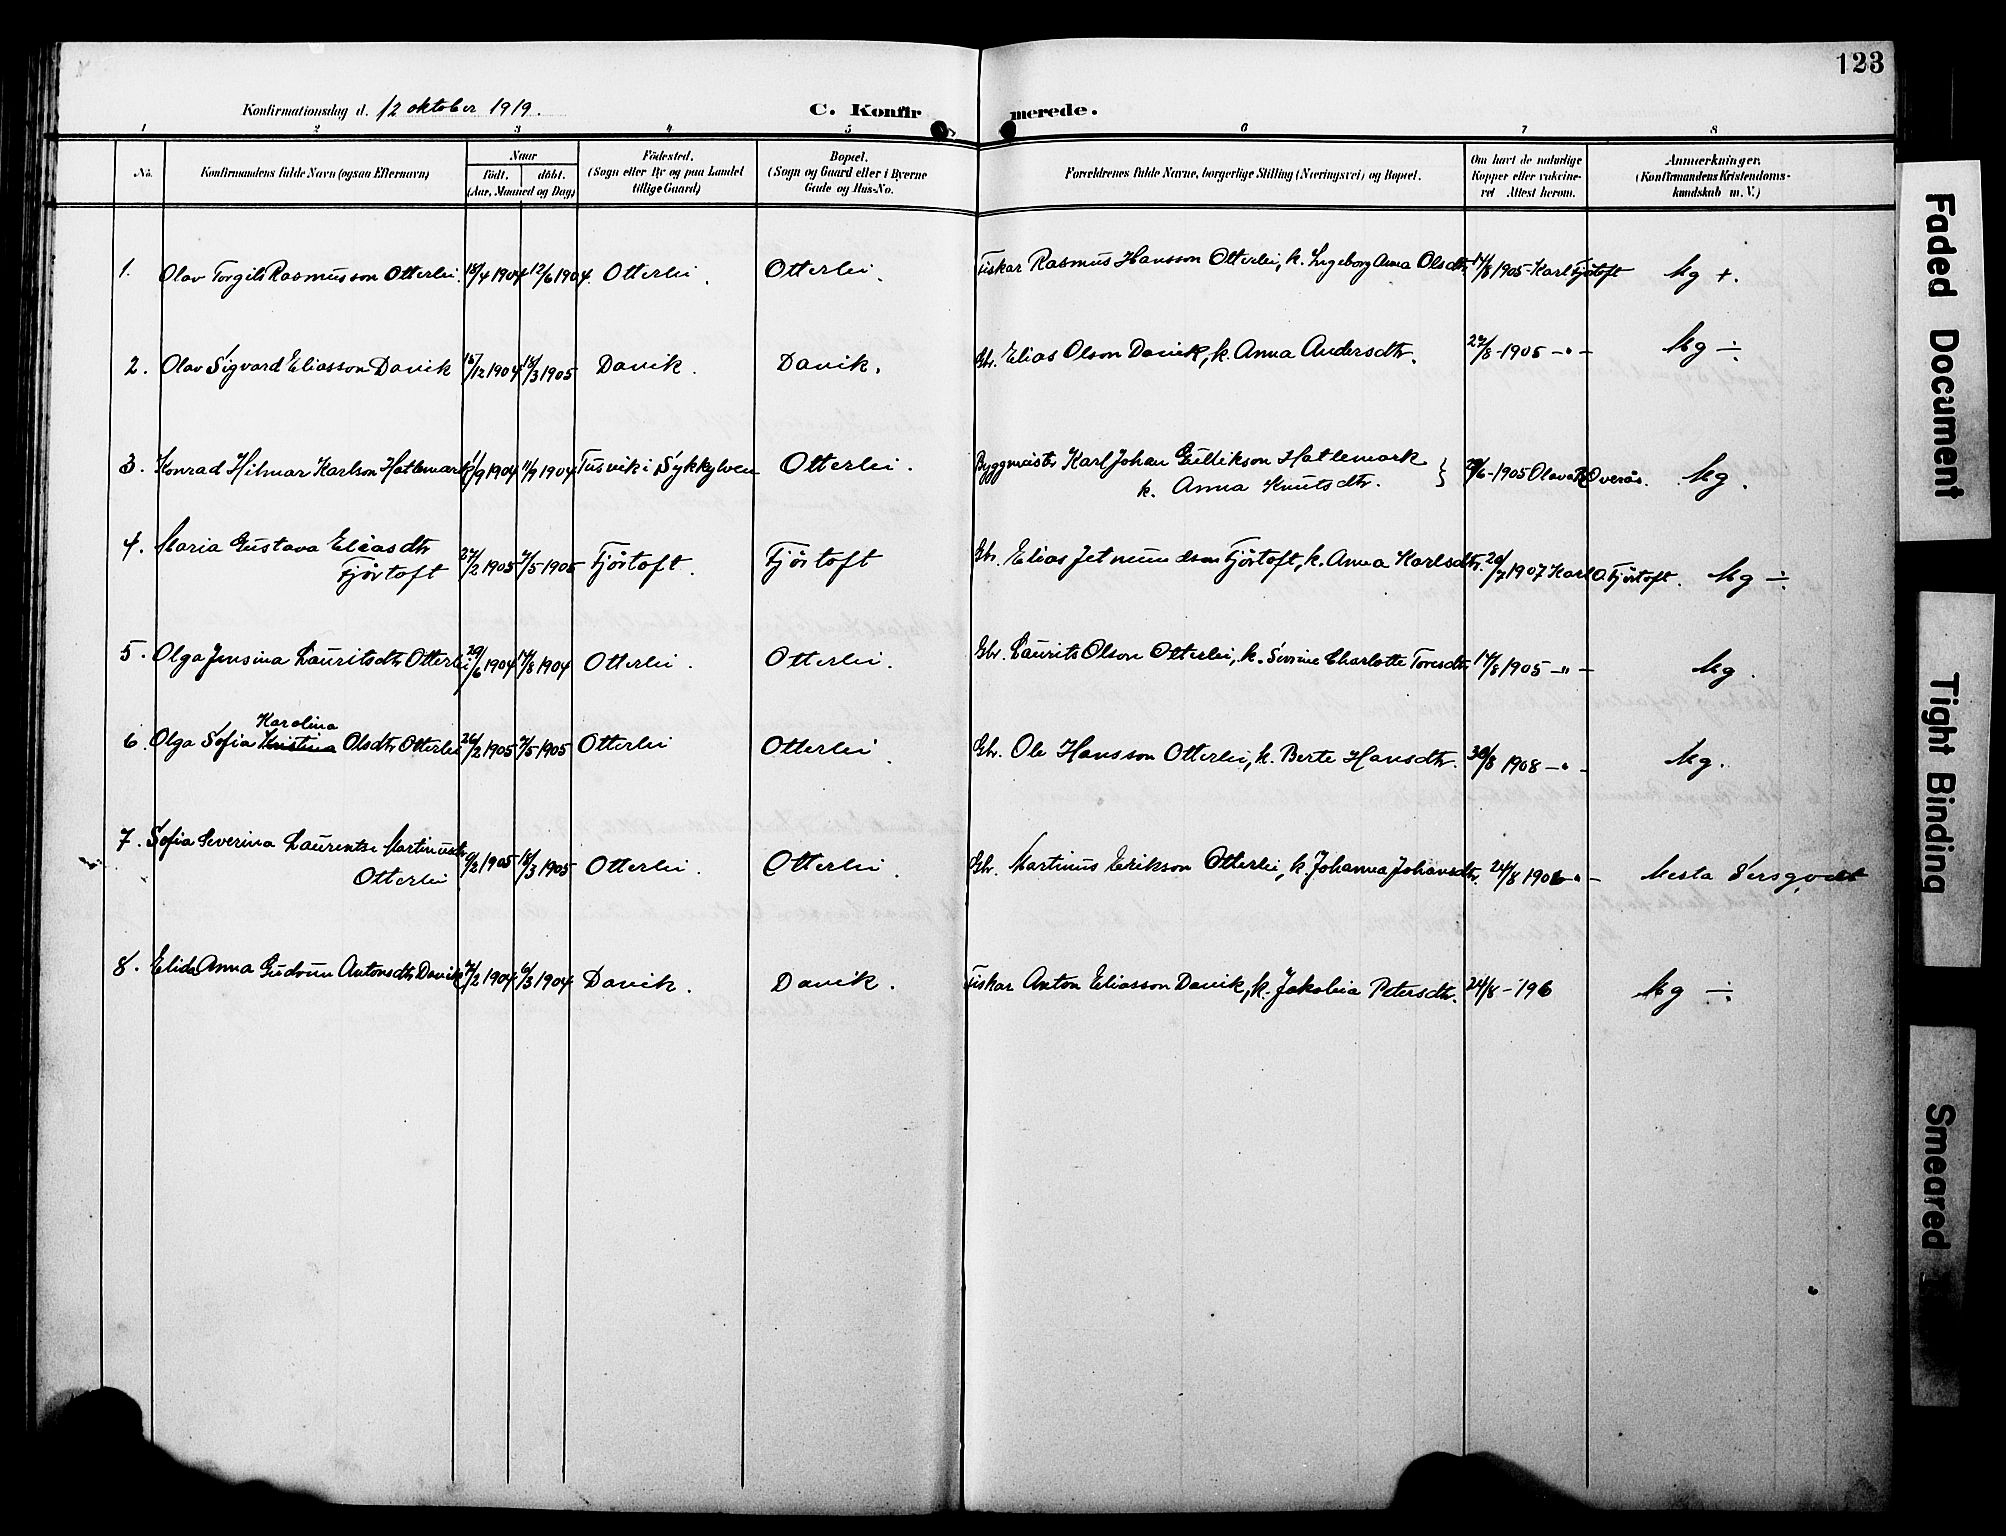 123
Konfirmationsdag d. 12 oktober 1919. C. Konfirmerede.
1 2 3 4 5 6 7 8
No. Konfirmandens fulde Navn (ogsaa Efternavn) Naar födt. döbt. (Aar, Maaned og Dag) Födested. (Sogn eller By og paa Landet tillige Gaard) Bopæl. (Sogn og Gaard eller i Byerne Gade og Hus-No. Forældrenes fulde Navne, borgerlige Stilling (Næringsvei) og Bopæl. Om havt de naturlige Kopper eller vakcineret Attest herom. Anmærkninger. (Konfirmandens Kristendomskundskab m. V.)
1. Olav Torgils Rasmusson Otterlei. 18/4 1904 12/6 1904 Otterlei. Otterlei. Fiskar Rasmus Hansson Otterlei, k. Ingeborg Anna Olsdtr. 17/8 1905 - Karl Fjörtoft Mg +.
2. Olav Sigvard Eliasson Davik 15/12 1904 18/3 1905 Davik. Davik. Gbr. Elias Olson Davik, k. Anna Andersdtr. 22/8 - 1905 -"- Mg ÷
3. Konrad Hilmar Karlson Hatlemark 1/9 1904 11/9 1904 Tusvik i Sykkylven Otterlei. Byggmeister Karl Johan Gullikson Hatlemark
k. Anna Knutsdtr. } 29/6 - 1905 Olav R Overås. Mg.
4. Maria Gustava Eliasdtr
Fjörtoft 27/2 1905 7/5 1905 Fjörtoft. Fjörtoft Gbr. Elias Jetmundson Fjörtoft, k. Anna Karlsdtr. 20/7 1907 Karl O Fjörtoft. Mg ÷
5. Olga Jensina Lauritsdtr Otterlei 29/6 1904 14/8 1904 Otterlei. Otterlei. Gbr. Laurits Olson Otterlei, k. Serine Charlotte Toresdtr 17/8 1905 -"- Mg.
Karolina
6. Olga Sofia Kristina Olsdtr Otterlei 26/2 1905 7/5 1905 Otterlei Otterlei. Gbr. Ole Hansson Otterlei, k. Berte Hansdtr. 30/8 1908 -"- Mg.
7. Sofia Severina Laurentse Martinusdtr
Otterlei 9/2 1905 18/3 1905 Otterlei. Otterlei. Gbr. Martinus Erikson Otterlei, k. Johanna Johansdtr. 24/8 1906 -"- Mesta
8. Elida Anna Gudrun Antonsdtr Davik 7/2 1904 6/3 1904 Davik. Davik. Fiskar Anton Eliasson Davik, k. Jakobia Petersdtr. 24/8 - 196 Mg ÷
Faded Document
Tight Binding
Smeared